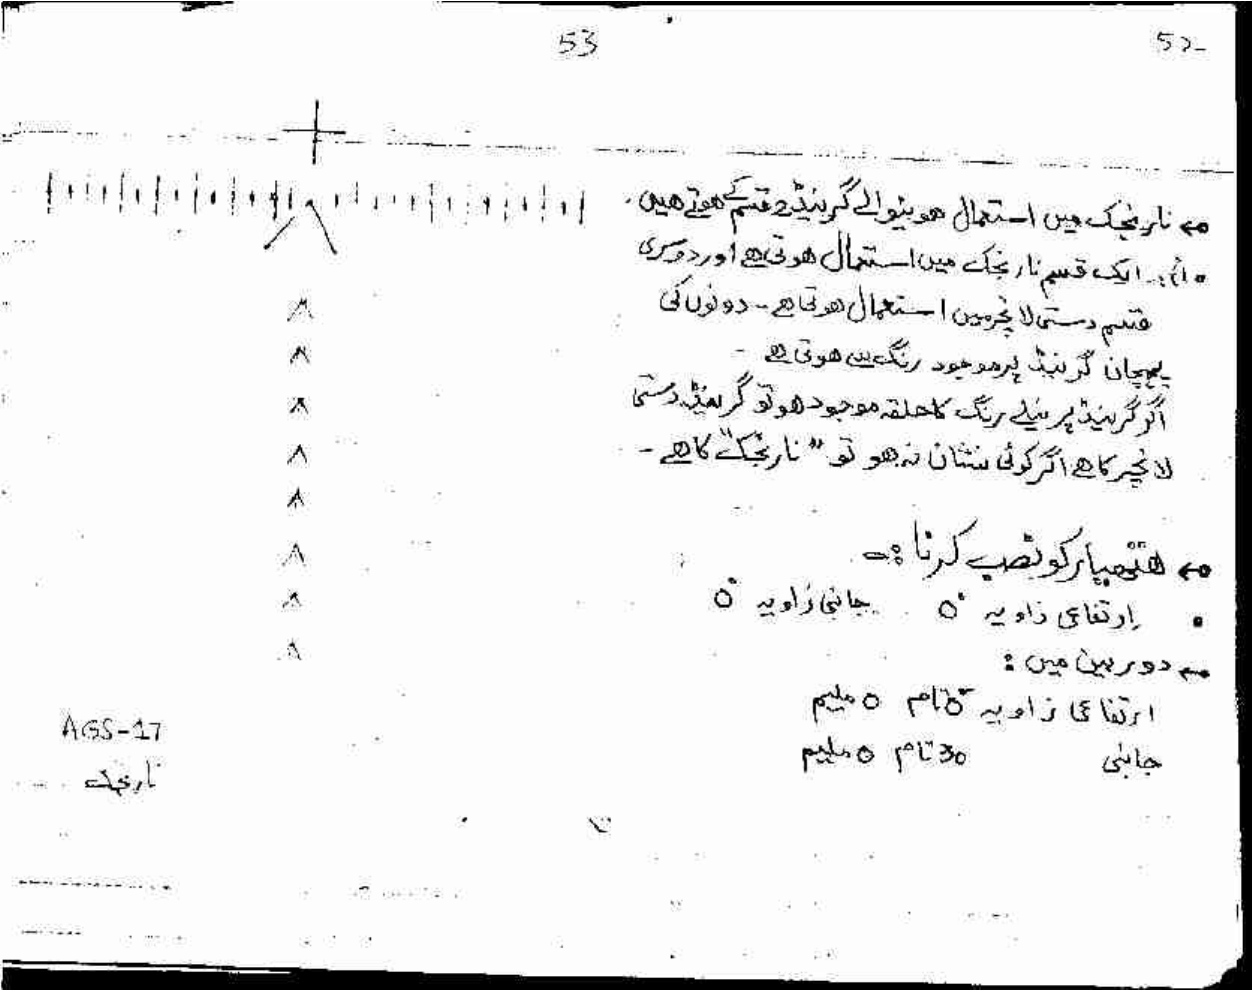 52
← نارنجک میں استعمال ہونیوالے گرنیڈ قسم کے ہوتے ہیں۔
ایک قسم نارنجک میں استعمال ہوتی ہے اور دوسری
قسم دستی لانچر میں استعمال ہوتی ہے ۔ دونوں کی
پہچان گرنیڈ پر موجود رنگ سے ہوتی ہے ۔
اگر گرنیڈ پر نیلے رنگ کا حلقہ موجود ہو تو گرنیڈ دستی
لانچر کا ہے اگر کوئی نشان نہ ہو تو "نارنجک" کا ہے ۔
← ہتھیار کو نصب کرنا :۔
• ارتفاعی زاویہ 0° جانبی زاویہ 0°
← دوربین میں :
ارتفاعی زاویہ تام 0 ملیم
جانبی 30 تام 0 ملیم
53
AGS-17
نارنجک